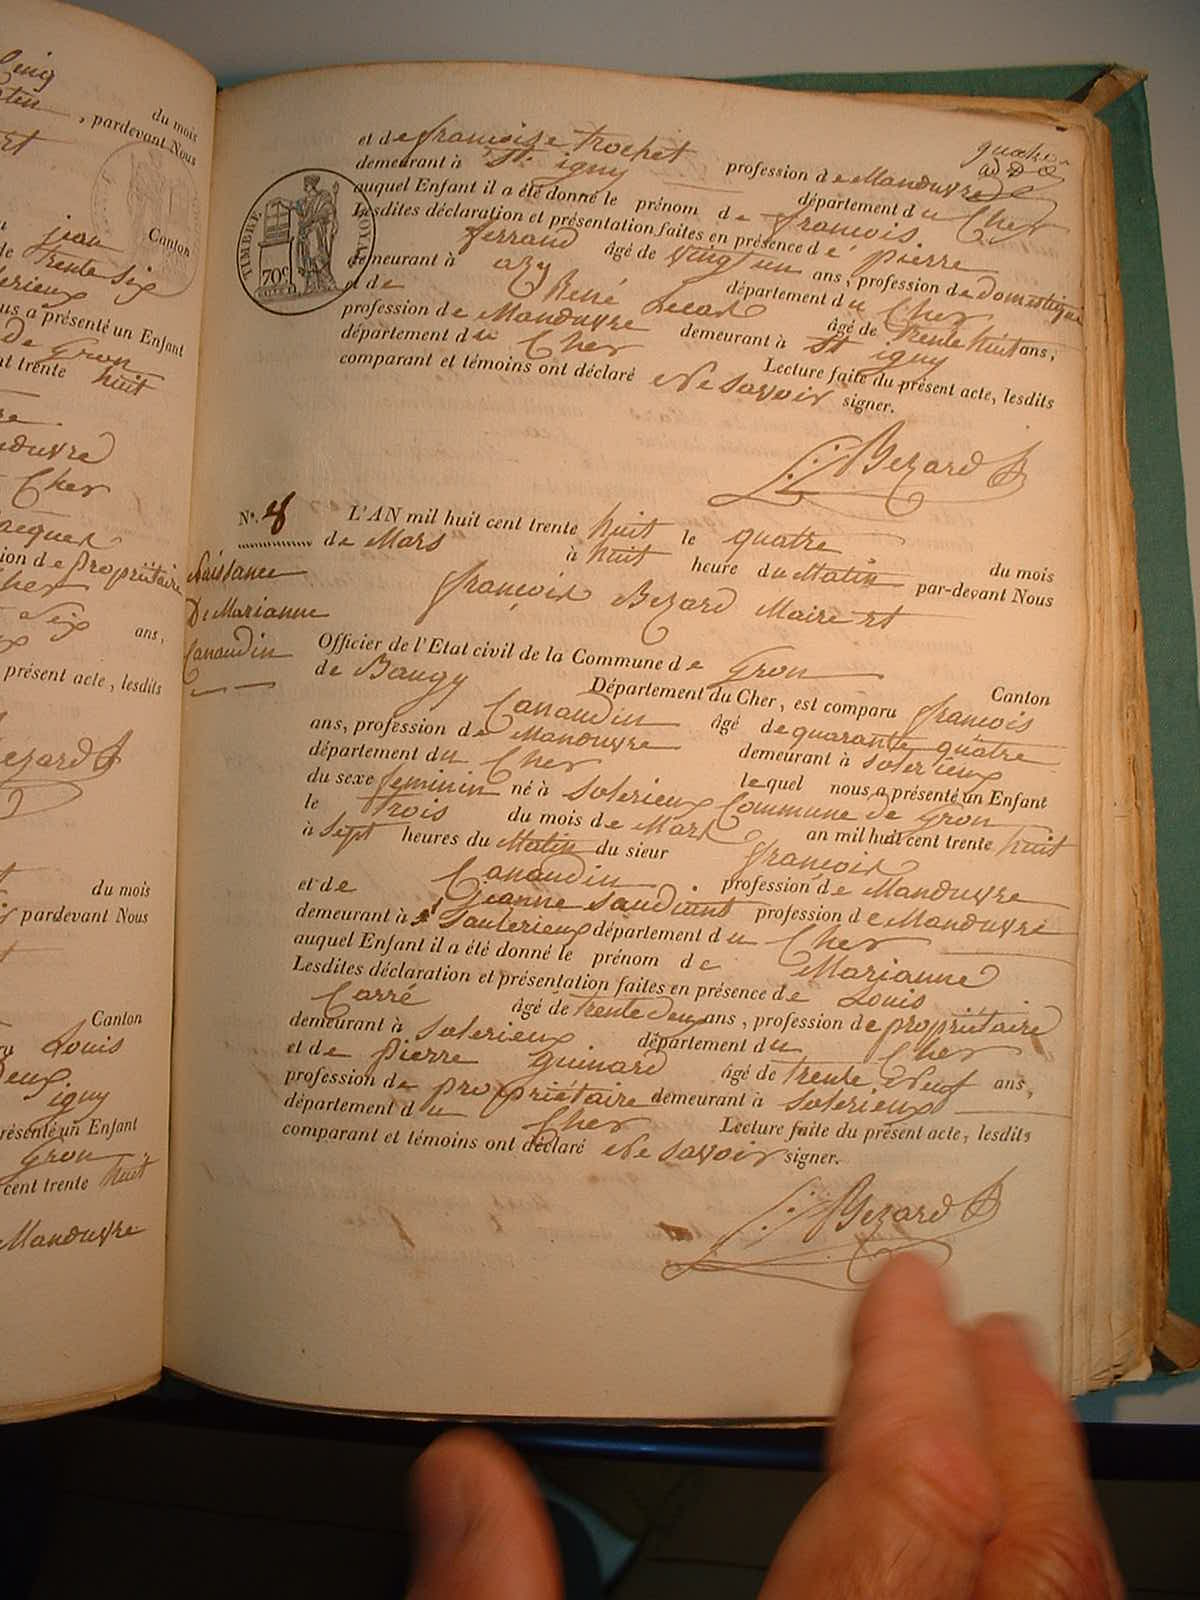 du mois
, pardevant Nous
jean
Canton
trente six
a présenté un Enfant
De Gron
nt trente huit
Cher
ion de propriétaire
six ans,
présent acte, lesdits
du mois
pardevant Nous
Canton
Louis
igny
présenté un Enfant
Gron
cent trente huit
Manouvre
quatre
et de francoise trochet profession de Manouvre
demeurant à St. igny département du Cher
auquel Enfant il a été donné le prénom de francois.
Lesdites déclaration et présentation faites en présence de pierre
ferrand âgé de vingt un ans, profession de Domestique
demeurant à azy département du Cher
et de René Lecas âgé de trente huit ans,
profession de Manouvre demeurant à St igny
département du Cher Lecture faite du présent acte, lesdits
comparant et témoins ont déclaré Ne savoir signer.
Bezard
TIMBRE ROYAL
70c
No. 8
Naissance
De Marianne
Canaudin
L'AN mil huit cent trente huit le quatre du mois
de Mars à huit heure du Matin par-devant Nous
françois Bezard Maire et
Officier de l'Etat civil de la Commune de Gron Canton
de Baugy Département du Cher, est comparu françois
Canaudin âgé de quarante quatre
ans, profession de Manouvre demeurant à Solerieux
département du Cher lequel nous a présenté un Enfant
du sexe feminin né à Solerieux Commune de Gron
le trois du mois de Mars an mil huit cent trente huit
à sept heures du Matin du sieur françois
Canaudin profession de Manouvre
et de Jeanne saudiant profession de Manouvre
demeurant à Saulerieux département du Cher
auquel Enfant il a été donné le prénom de Marianne
Lesdites déclaration et présentation faites en présence de Louis
Carré âgé de trente deux ans, profession de propriétaire
demeurant à Solerieux département du Cher
et de pierre guinard âgé de trente Neuf ans,
profession de propriétaire demeurant à Solerieux
département du Cher Lecture faite du présent acte, lesdits
comparant et témoins ont déclaré Ne savoir signer.
Bezard